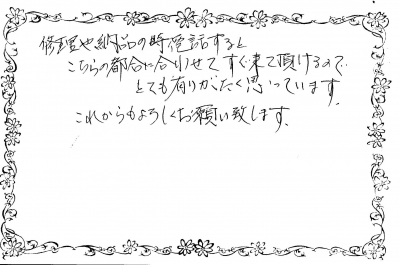 修理や納品の時電話すると
こちらの都合に合わせて すぐ来て頂けるので、
とても有りがたく思っています。
これからもよろしくお願い致します。